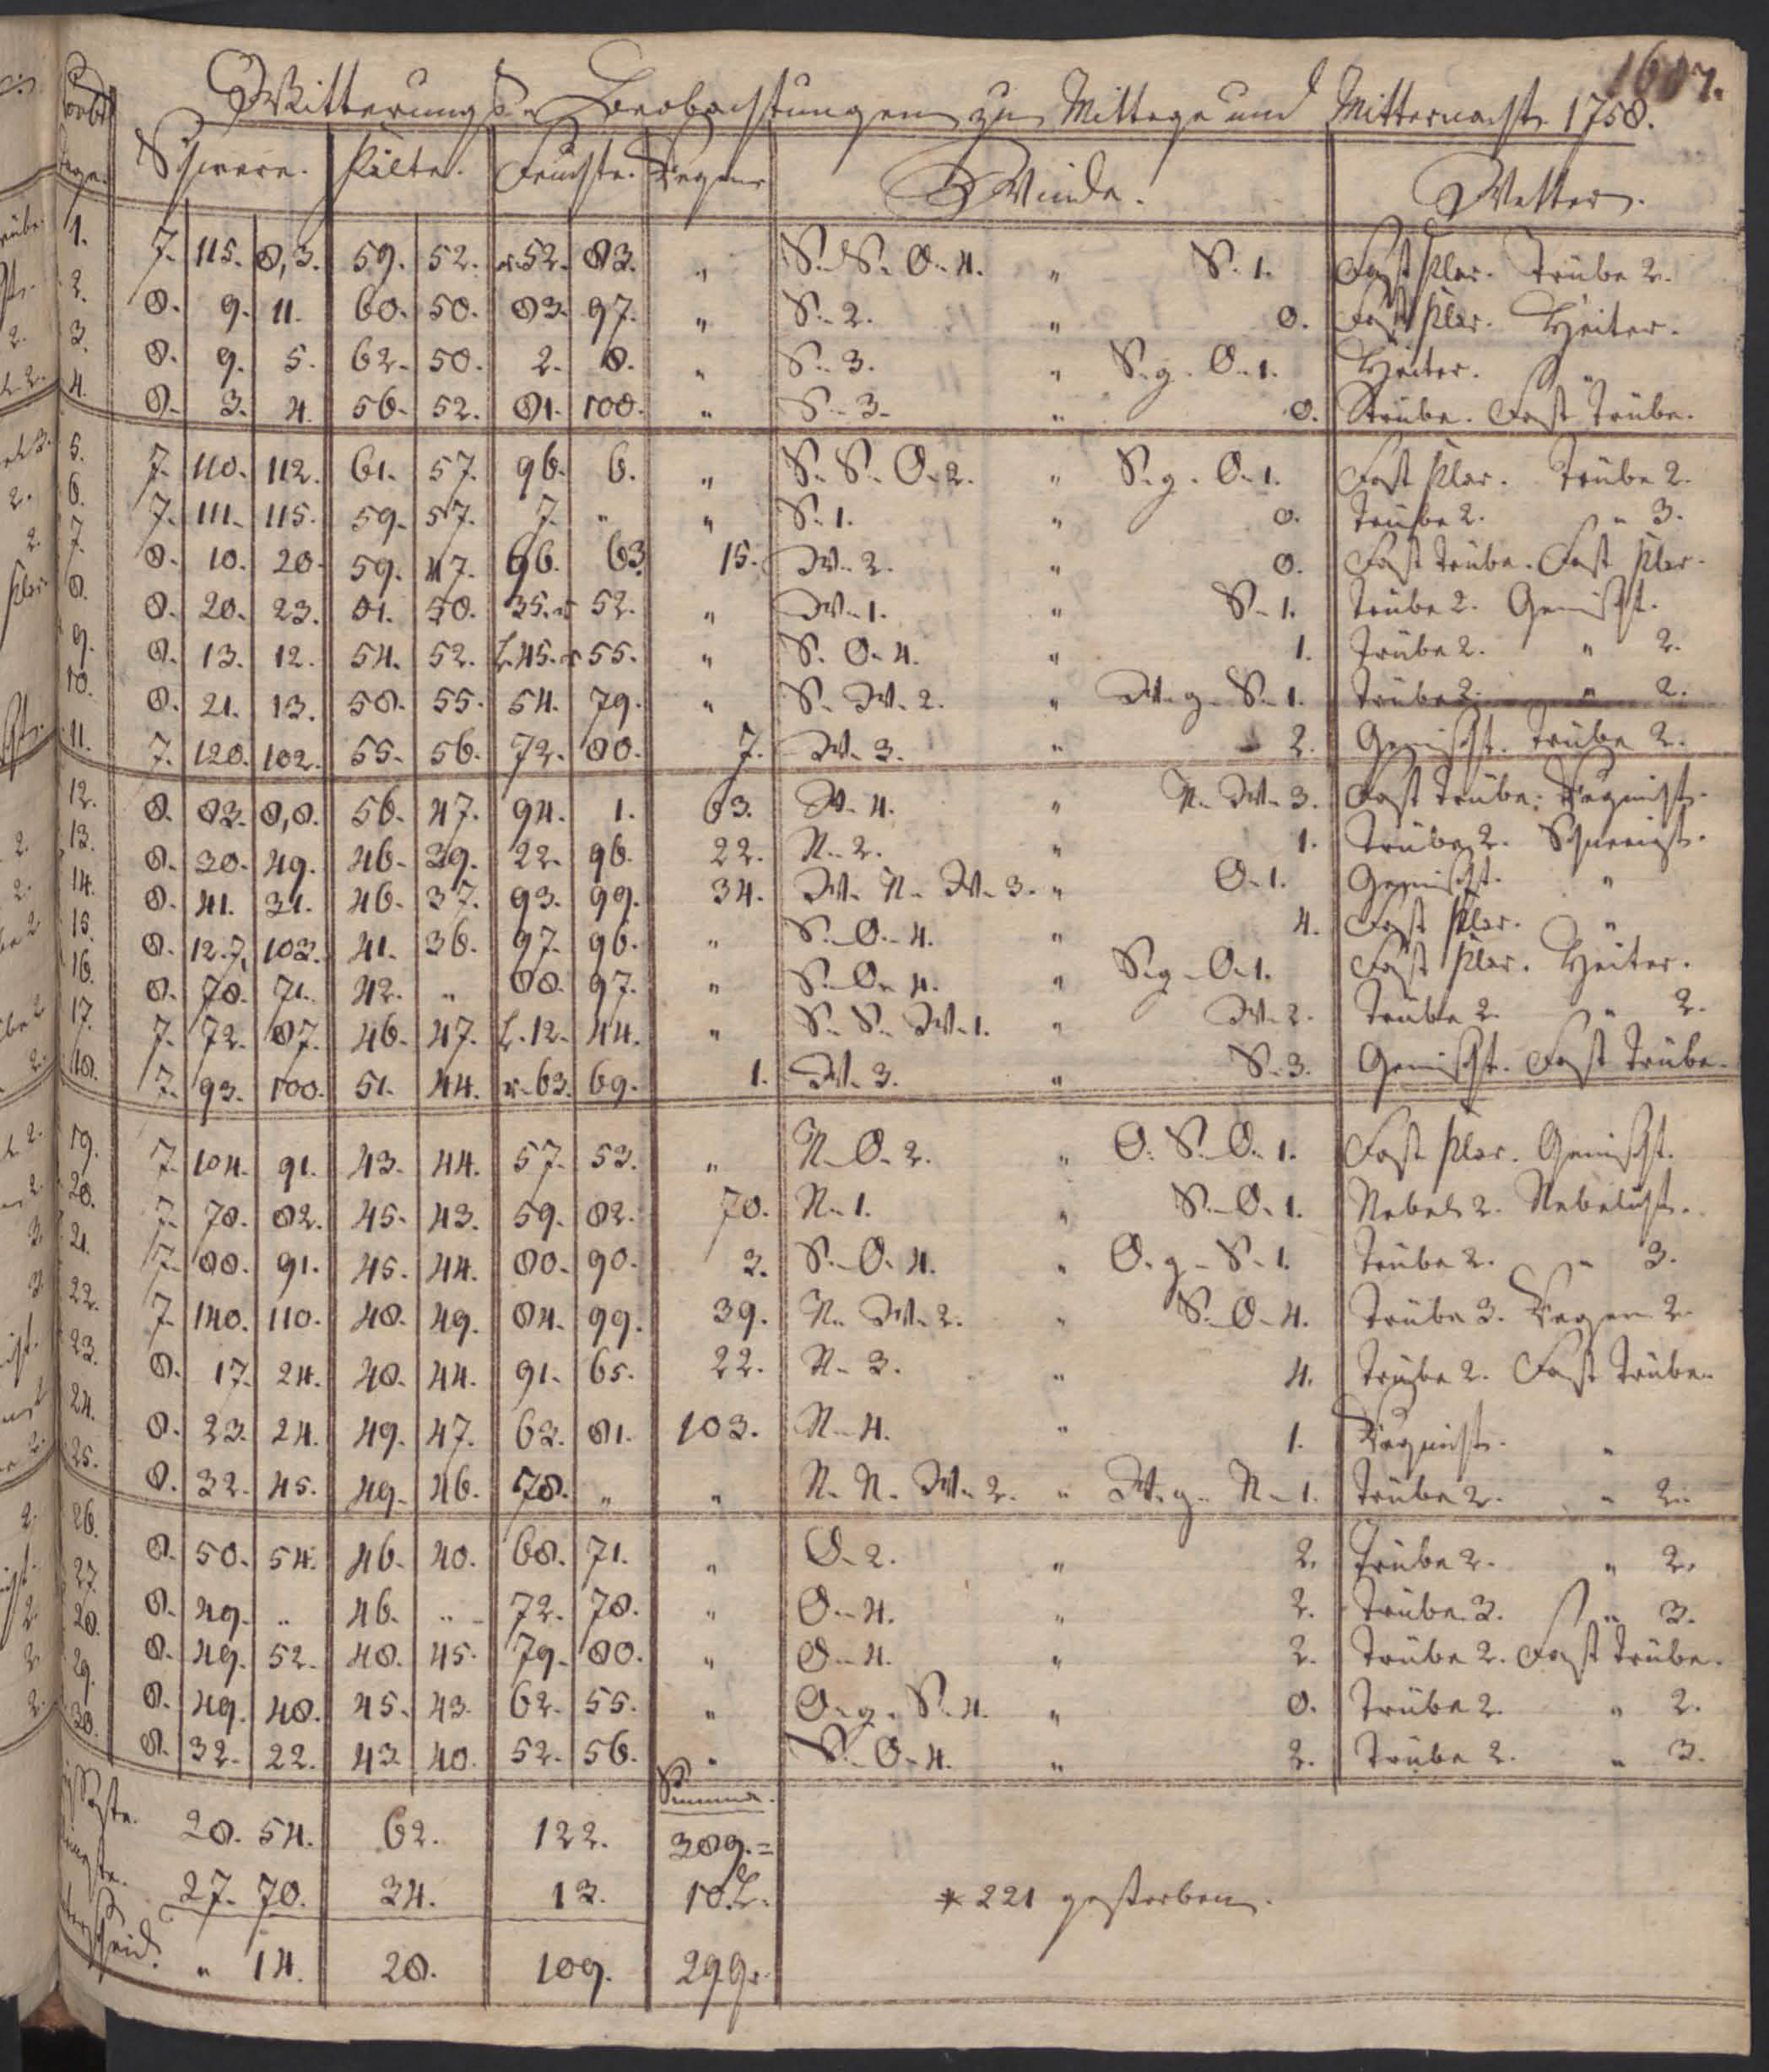 1607.
Witterungs-Beobachtungen zu Mittage und Mitternacht. 1758.
Tage. Schwere. Kälte. Feuchte. Regen Winde. Wetter.
1. 7. 115. 8,3. 59. 52. r.52. 83. " S. S. O. 4. " S. 1. Fast klar. Trübe 2.
2. 8. 9. 11. 60. 50. 83. 97. " S. 2. " 0. Fast klar. Heiter.
3. 8. 9. 5. 62. 50. 2. 8. " S. 3. " S. g. O. 1. Heiter. "
4. 8. 3. 4. 56. 52. 81. 100. " S. 3. " 0. Trübe. Fast trübe.
5. 7. 110. 112. 61. 57. 96. 6. " S. S. O. 2. " S. g. O. 1. Fast klar. Trübe 2.
6. 7. 111. 115. 59. 57. 7. " " S. 1. " 0. Trübe 2. " 3.
7. 8. 10. 20. 59. 47. 96. 63. 15. W. 2. " 0. Fast trübe. Fast klar.
8. 8. 20. 23. 51. 50. 35. r 52. " W. 1. " S. 1. Trübe 2. Gemischt.
9. 8. 13. 12. 54. 52. L.45. r 55. " S. O. 4. " 1. Trübe 2. " 2.
10. 8. 21. 13. 58. 55. 54. 79. " S. W. 2. " W. g. S. 1. Trübe 2. " 2.
11. 7. 120. 102. 55. 56. 72. 80. 7. W. 3. " 2. Gemischt. Trübe 2.
12. 8. 83. 8,8. 56. 47. 94. 1. 63. W. 4. " N. W. 3. Fast trübe. Regnicht.
13. 8. 30. 49. 46. 39. 22. 96. 22. N. 2. " 1. Trübe 2. Schneeigt.
14. 8. 41. 31. 46. 37. 93. 99. 34. W. N. W. 3. " O. 1. Gemischt. "
15. 8. 12.7, 103. 41. 36. 97. 96. " S. O. 4. " 4. Fast klar. "
16. 8. 78. 71. 42. " 88. 97. " S. O. 4. " S. g. O. 1. Fast klar. Heiter.
17. 7. 72. 87. 46. 47. L.12. 44. " S. S. W. 1. " W. 2. Trübe 2. " 2.
18. 7. 93. 100. 51. 44. r.63. 69. 1. W. 3. " S. 3. Gemischt. Fast trübe.
19. 7. 104. 91. 43. 44. 57. 53. " N. O. 2. " O. S. O. 1. Fast klar. Gemischt.
20. 7. 78. 82. 45. 43. 59. 82. 70. N. 1. " S. O. 1. Nebel 2. Nebelicht.
21. 7. 88. 91. 45. 44. 80. 90. 3. S. O. 4. " O. g. S. 1. Trübe 2. " 3.
22. 7. 140. 110. 48. 49. 84. 99. 39. N. W. 2. " S. O. 4. Trübe 3. Regen 2.
23. 8. 17. 24. 48. 44. 91. 65. 22. N. 3. " 4. Trübe 2. Fast trübe.
24. 8. 23. 24. 49. 47. 63. 81. 103. N. 4. " 1. Regnicht. "
25. 8. 32. 45. 49. 46. 78. " " N. N. W. 2. " W. g. N. 1. Trübe 2. " 2.
26. 8. 50. 54. 46. 40. 68. 71. " O. 2. " 2. Trübe 2. " 2.
27. 8. 49. " 46. " 72. 78. " O. 4. " 2. Trübe 3. " 3.
28. 8. 49. 52. 48. 45. 79. 80. " O. 4. " 2. Trübe 2. Fast trübe.
29. 8. 49. 48. 45. 43. 62. 55. " O. g. S. 4. " 0. Trübe 2. " 2.
30. 8. 32. 22. 43. 40. 52. 56. " S. O. 4. " 2. Trübe 2. " 3.
Summa.
28. 54. 62. 122. 389. =
27. 70. 34. 13. 10.L. * 221 gestorben.
" 14. 28. 109. 299.